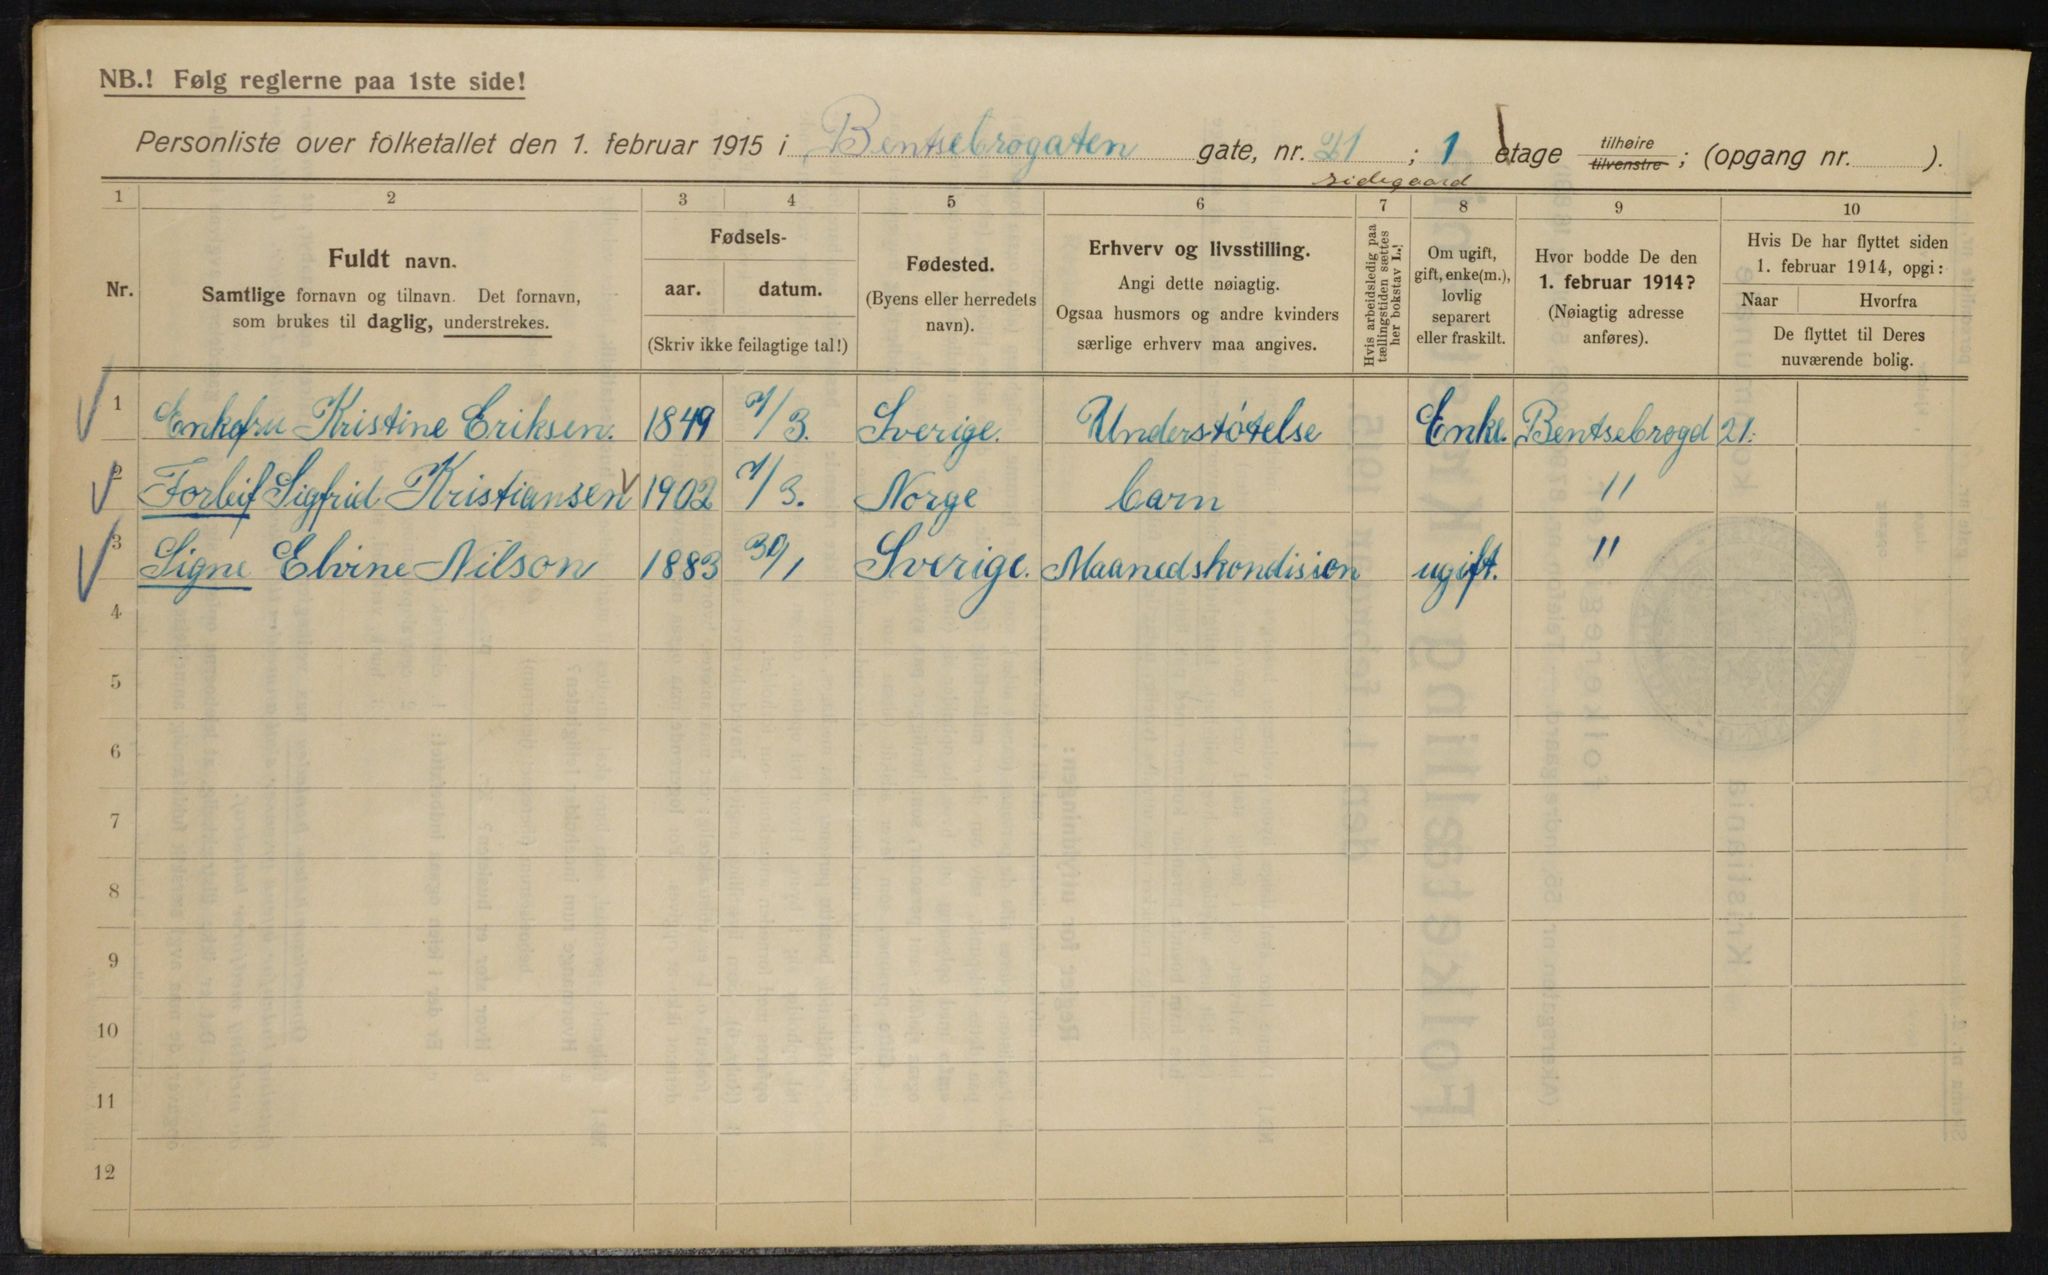 NB.! Følg reglerne paa 1ste side!
Personliste over folketallet den 1. februar 1915 i Bentsebrogaten gate, nr. 21 ; 1 etage tilhøire tilvenstre ; (opgang nr. ).
sidegaard
1 2 3 4 5 6 7 8 9 10
Nr.
Fuldt navn.
Samtlige fornavn og tilnavn. Det fornavn,
som brukes til daglig, understrekes.
Fødsels-
aar. datum.
(Skriv ikke feilagtige tal!)
Fødested.
(Byens eller herredets
navn).
Erhverv og livsstilling.
Angi dette nøiagtig.
Ogsaa husmors og andre kvinders
særlige erhverv maa angives.
Hvis arbeidsledig paa
tællingstiden sættes
her bokstav L.!
Om ugift,
gift, enke(m.),
lovlig
separert
eller fraskilt.
Hvor bodde De den
1. februar 1914?
(Nøiagtig adresse
anføres).
Hvis De har flyttet siden
1. februar 1914, opgi:
Naar Hvorfra
De flyttet til Deres
nuværende bolig.
1 Enkefru Kristine Eriksen. 1849 7/3. Sverige. Understøtelse Enke. Bentsebrogd 21.
2 Forleif Sigfrid Kristiansen 1902 7/3. Norge barn "
3 Signe Elvine Nilson 1883 30/1 Sverige. Maanedskondision ugift. "
4
5
6
7
8
9
10
11
12